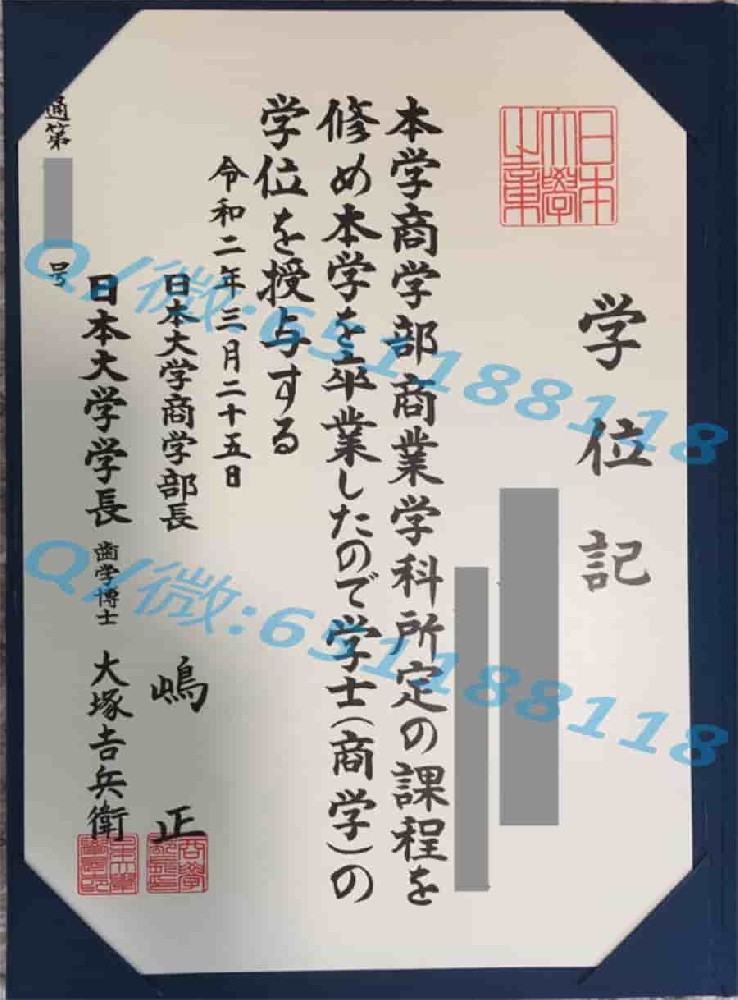 日本
大學
之章
学位記
本学商学部商業学科所定の課程を
修め本学を卒業したので学士(商学)の
学位を授与する
令和二年三月二十五日
日本大学商学部長 嶋 正
日本大学学長 歯学博士 大塚吉兵衛
通第 号
Q/微:651188118
Q/微:651188118